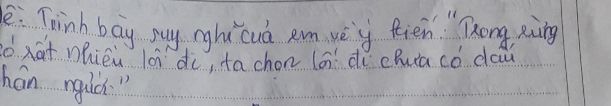 Đề: Trình bày suy nghĩ của em về ý kiến: "Trong rừng
có rất nhiều lối đi, ta chọn lối đi chưa có dấu
chân người."